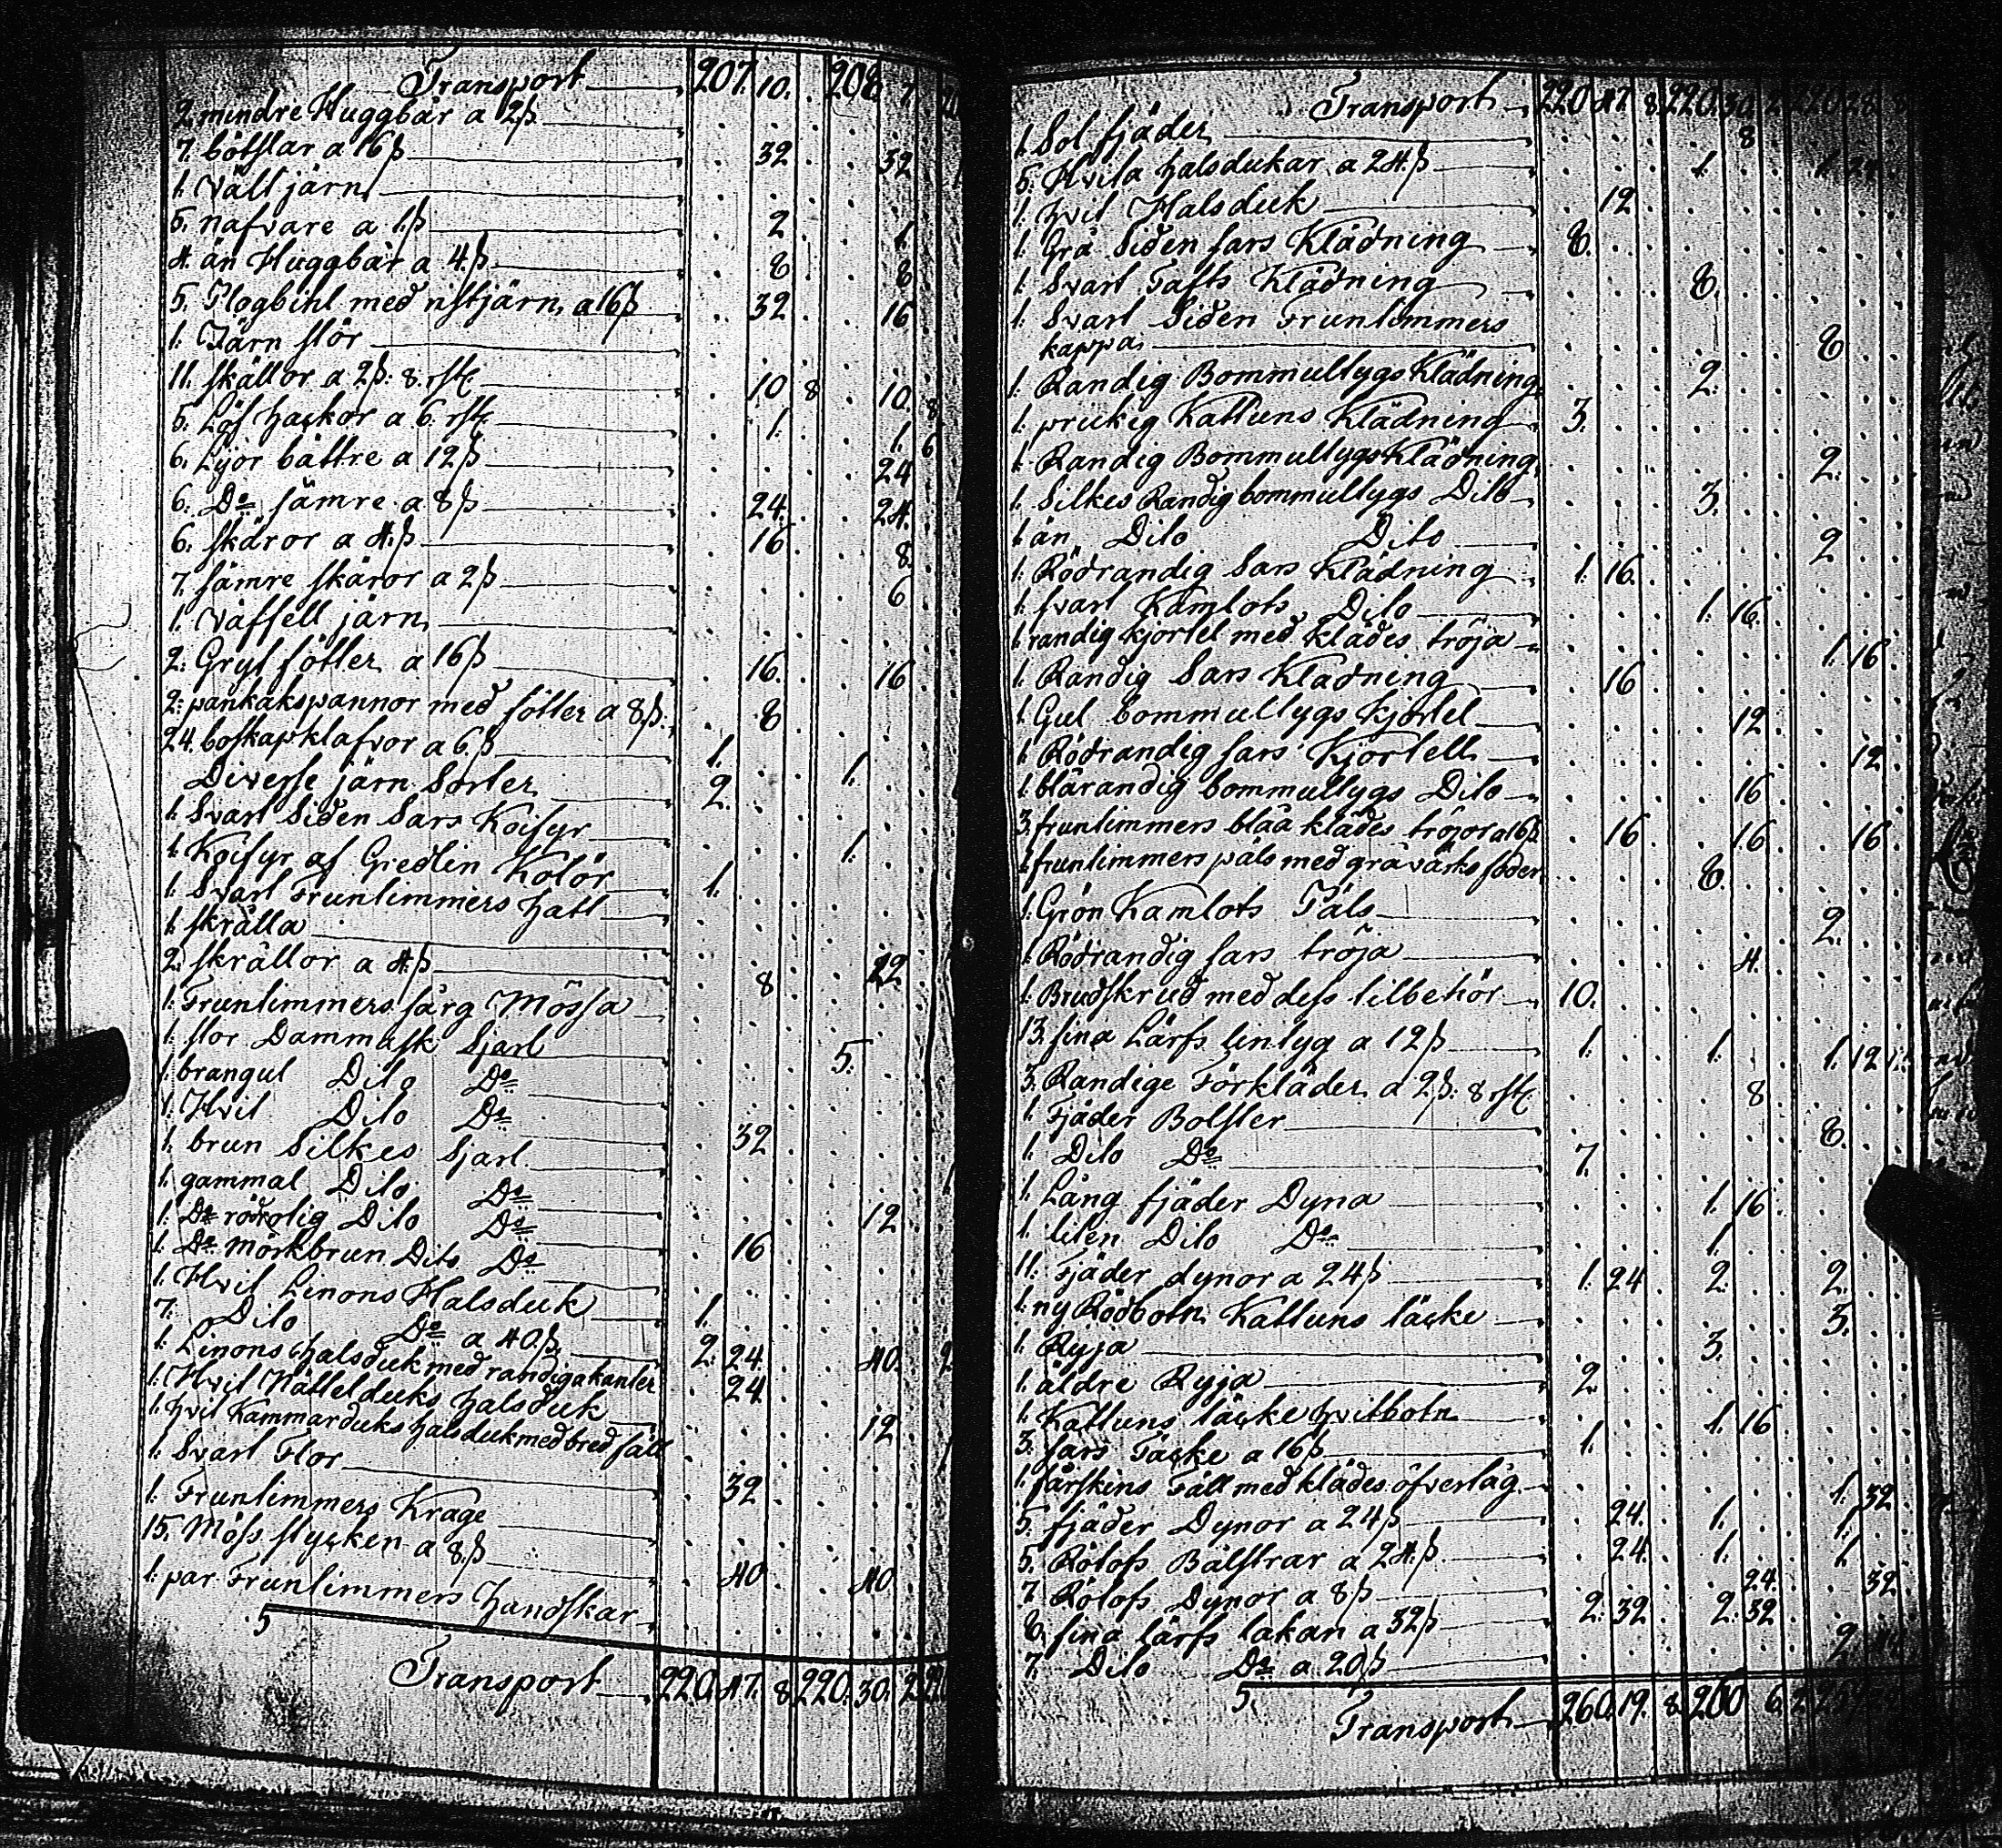 Transport 207. 10. 208 7.
2 mindre Huggbär a 12ß
7. bötslar a 16ß 32 32
1. Väll järn
5. nafvare a 1.ß 2 1.
4. än Huggbär a 4.ß 8 8
5. Plogbihl med ristjärn, a 16ß 32 16
1. Järn stör
11. skällor a 2ß: 8. rst 10 8 10. 8
5. Löf hackor a 6. rst 1. 1. 6
6. Lijor bättre a 12ß 24
6. Do sämre a 8ß 24. 24.
6. skäror a 4.ß 16 8.
7. sämre skäror a 2ß 6
1. Väffell järn
2: Gryt fötter a 16ß 16. 16
2: pankakspannor med fötter a 8ß. 8
24. boskapsklafvor a 6.ß 1. 1.
Diverse järn Sorter 2.
1. Svart Siden Sars Koifyr 1.
1. Koifyr af Gredlin Kolör 1.
1. Svart Fruntimmers hatt
1. skrälla
2. skrällor a 4.ß 8 22
1. Fruntimmers särg Mössa
1. stor Dammask Sjarl 5.
1. brangul Dito Do
1. Hvit Dito Do
1. brun Silkes Sjarl 32
1. gammal Dito Do
1. Do rödrolig Dito Do 12
1. Do Mörkbrun Dito Do 16
1. Hvit Linons Halsduk
7. Dito Do a 40.ß 1.
1. Linons halsduk med randiga kanter 2. 24. 40.
1. Hvit Nättelduks halsduk 24
1. hvit Kammarduks halsduk med bred fåll 12
1. Svart Flor
1. Fruntimmers Krage 32
15. Möss stycken a 8.ß
1. par Fruntimmers handskar 40 40
5
Transport 220. 47. 8 220. 30. 2
Transport 220 47. 8 220. 30. 2 220 28
1. Sol fjäder 8
5. Hvita halsdukar a 24.ß 1. 1. 24
1. hvit Halsduk 12
1. Grå Siden sars Klädning 8.
1. Svart Tafts Klädning 8.
1. Svart Siden Fruntimmers
kappa 8
1. Randig Bommullygs Klädning 2.
1. prickig Kattuns Klädning 3.
1. Randig Bommullygs Klädning 2.
1. Silkes Randig bommullygs Dito 3.
1. än Dito Dito 2
1. Rödrandig Sars Klädning 1. 16.
1. svart Kamlots Dito 1. 16.
1. randig kjortel med klädes tröja 1. 16
1. Randig Sars Klädning 16
1. Gul bommullygs Kjortel 12
1. Rödrandig sars Kjortell 12
1. blårandig bommullygs Dito 16
3. fruntimmers blåa klädes tröjor a 16ß 16 16 16
1. fruntimmers päls med gråvärks foder 8.
1. Grön Kamlots Päls 2.
1. Rödrandig sars tröja 4.
1. Brudskrud med dess tilbehör 10.
13. fina Lärfs lintyg a 12ß 1. 1. 1. 12
3. Randige Förkläder a 2ß: 8 rst 8
1. Fjäder Bolster 8.
1. Dito Do 7.
1. Lång fjäder Dyna 1. 16
1. liten Dito Do 1.
11. Fjäder dynor a 24ß 1. 24 2. 2.
1. ny Rödbotn Kattuns täcke 3.
1. Ryja 3.
1. äldre Ryja 2
1. Kattuns täcke hvitbotn 1. 16
3. sars Täcke a 16ß 1.
1. fårskins Fäll med klädes öfverlag 1. 32
5. fjäder Dynor a 24ß 24. 1. 1.
5. Rölofs Bålstrar a 24.ß 24. 1. 1.
7. Rölofs Dynor a 8ß 24. 32
8. fina lärfs lakan a 32ß 2. 32 2. 32
7. Dito Do a 20ß 2
5.
Transport 260. 19. 8 260 6. 2